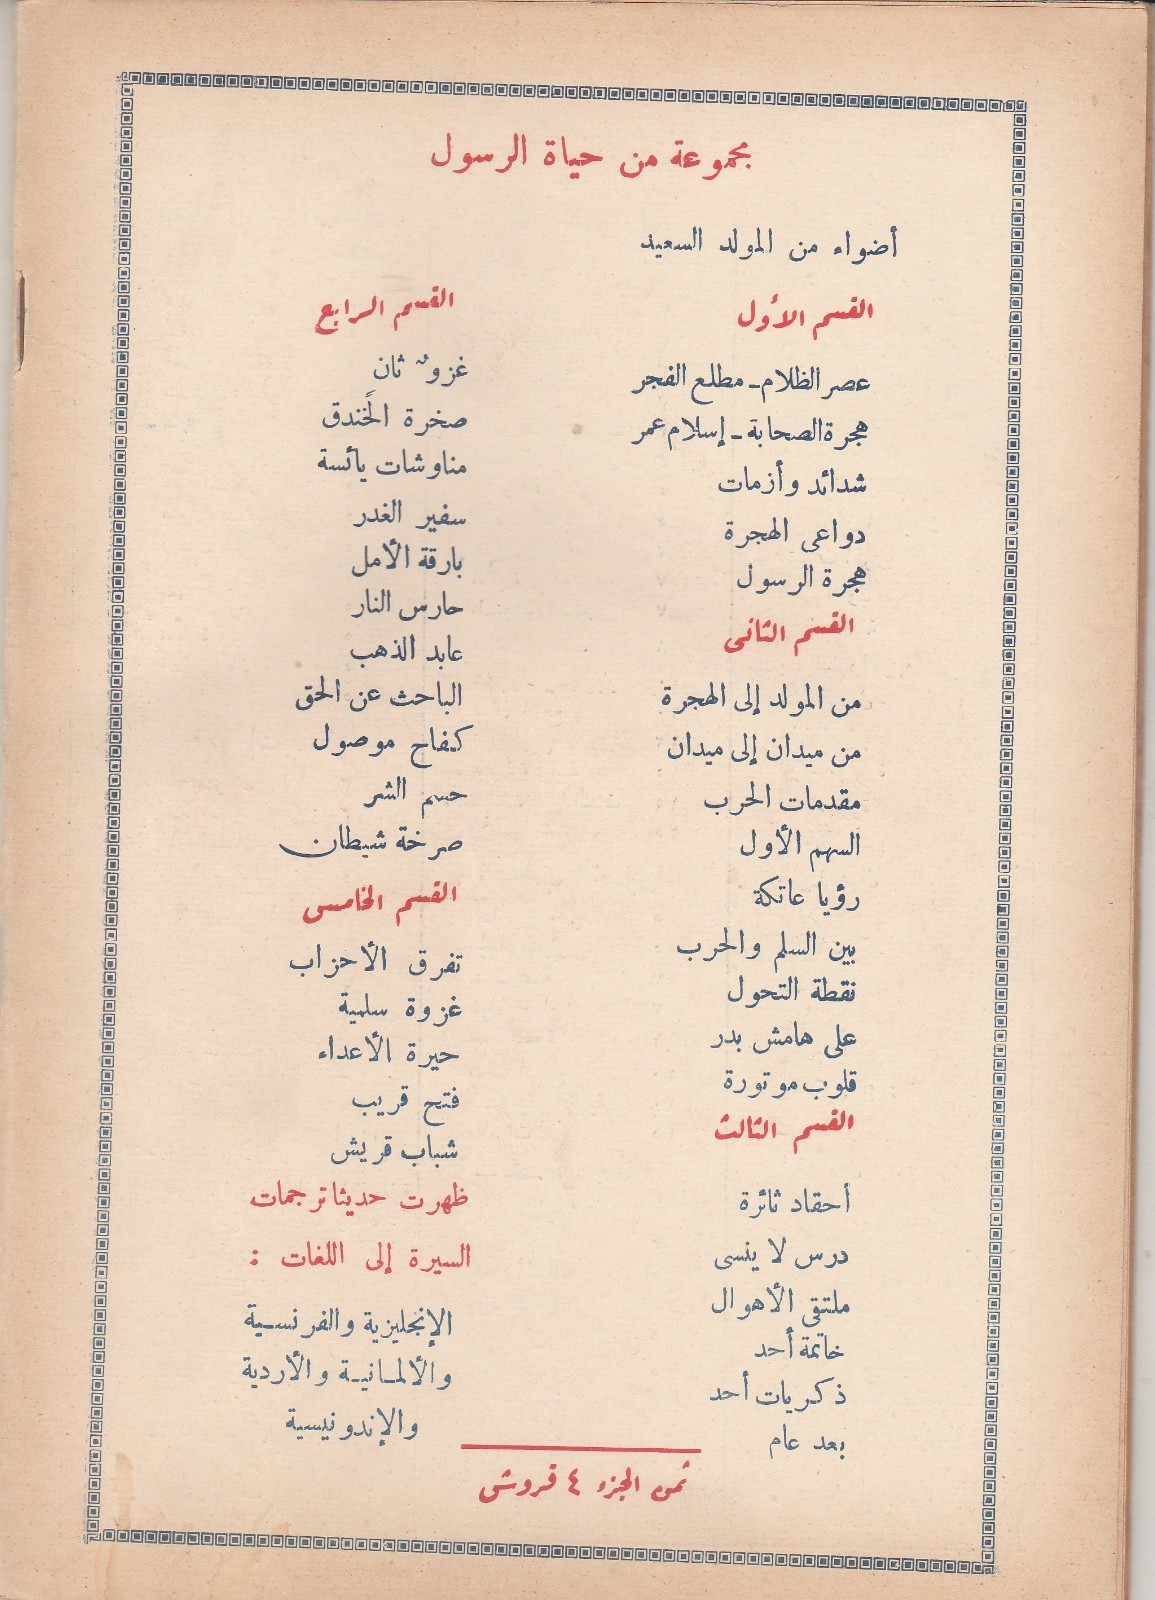 مجموعة من حياة الرسول
أضواء من المولد السعيد
القسم الأول
عصر الظلام - مطلع الفجر
هجرة الصحابة - إسلام عمر
شدائد وأزمات
دواعى الهجرة
هجرة الرسول
القسم الثانى
من المولد إلى الهجرة
من ميدان إلى ميدان
مقدمات الحرب
السهم الأول
رؤيا عاتكة
بين السلم والحرب
نقطة التحول
على هامش بدر
قلوب موتورة
القسم الثالث
أحقاد ثائرة
درس لا ينسى
ملتقى الأهوال
خاتمة أحد
ذكريات أحد
بعد عام
القسم الرابع
غزو ثان
صخرة الخندق
مناوشات يائسة
سفير الغدر
بارقة الأمل
حارس النار
عابد الذهب
الباحث عن الحق
كفاح موصول
حسم الشر
صرخة شيطان
القسم الخامس
تفرق الأحزاب
غزوة سلمية
حيرة الأعداء
فتح قريب
شباب قريش
ظهرت حديثا ترجمات
السيرة إلى اللغات :
الإنجليزية والفرنسية
والألمانية والأردية
والإندونيسية
ثمن الجزء ٤ قروش